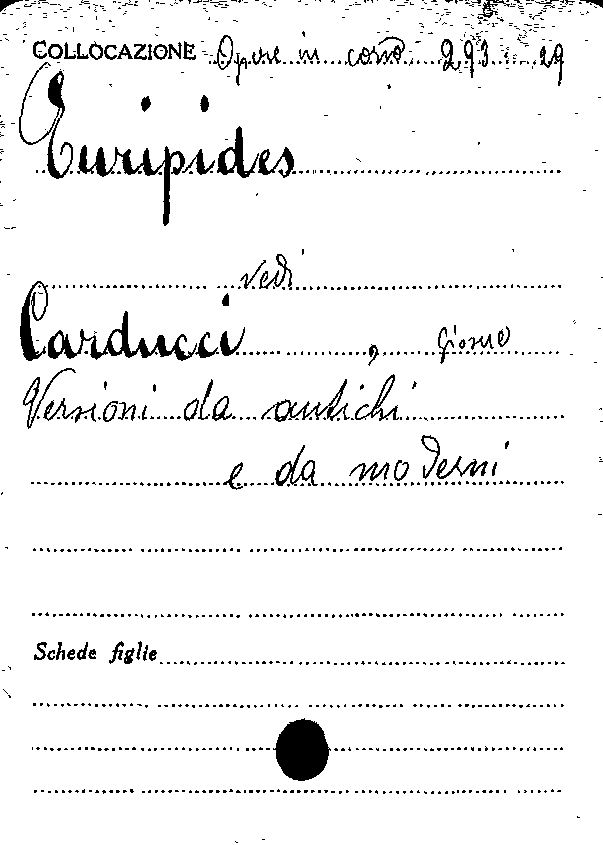 COLLOCAZIONE Opere in corso 293 29
Euripides
vedi
Carducci, Giosue
Versioni da antichi
e da moderni
Schede figlie